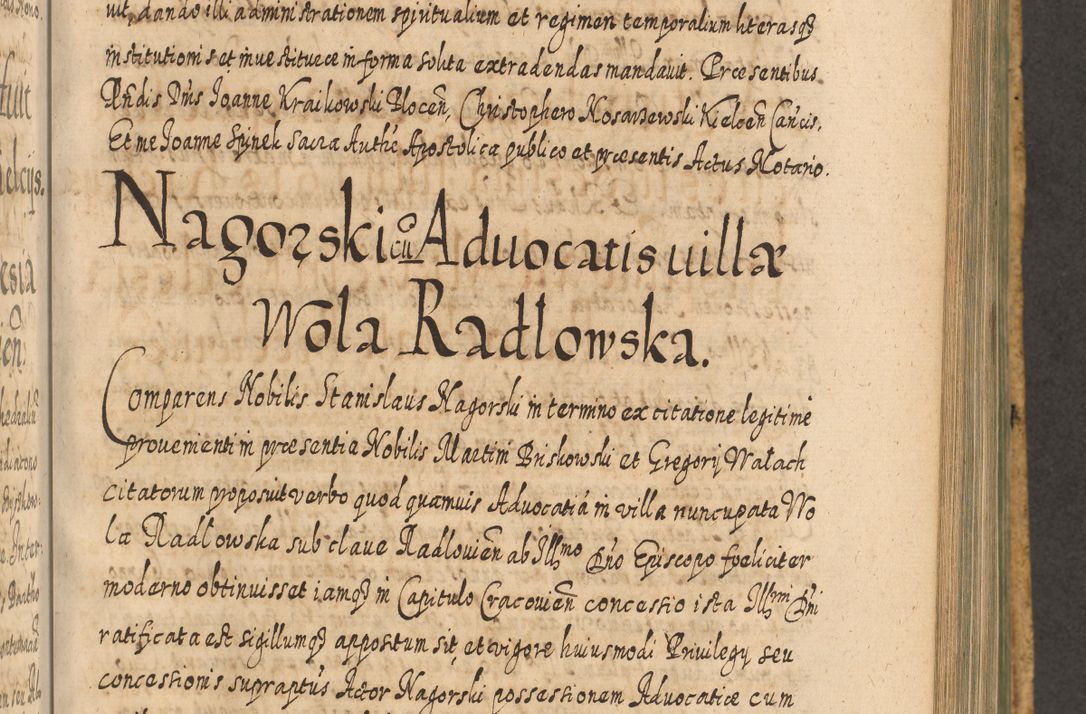 uit, dando illi administrationem spiritualium et regimen temporalium literasq3
institutionis et inuestituræ in forma solita extradendas mandauit. Præsentibus
Rndis Dnis Joanne Kraikowski Plocen, Christophero Nosarzewski Kielcen Cancis.
Et me Joanne Hynek Sacra Authe Apostolica publico et præsentis Actus Notario.
Nagorski cu Aduocatis uillæ
Wola Radlowska.
Comparens Nobilis Stanislaus Nagorski in termino ex citatione legitime
prouenienti in præsentia Nobilis Martini Briskowski et Gregorij Wałach
citatorum proposuit verbo quod quamuis Aduocatiá in villa nuncupata Wo
la Radłowska sub claue Radlouien ab Illmo Dno Episcopo fæliciter
moderno obtinuisset iamq3 in Capitulo Cracouien concessio ista Illmi Dni
ratificata est sigillumq3 appositum sit, et vigore huiusmodi Priuilegy seu
concessionis supraptus Actor Nagorski possessionem Aduocatiæ cum